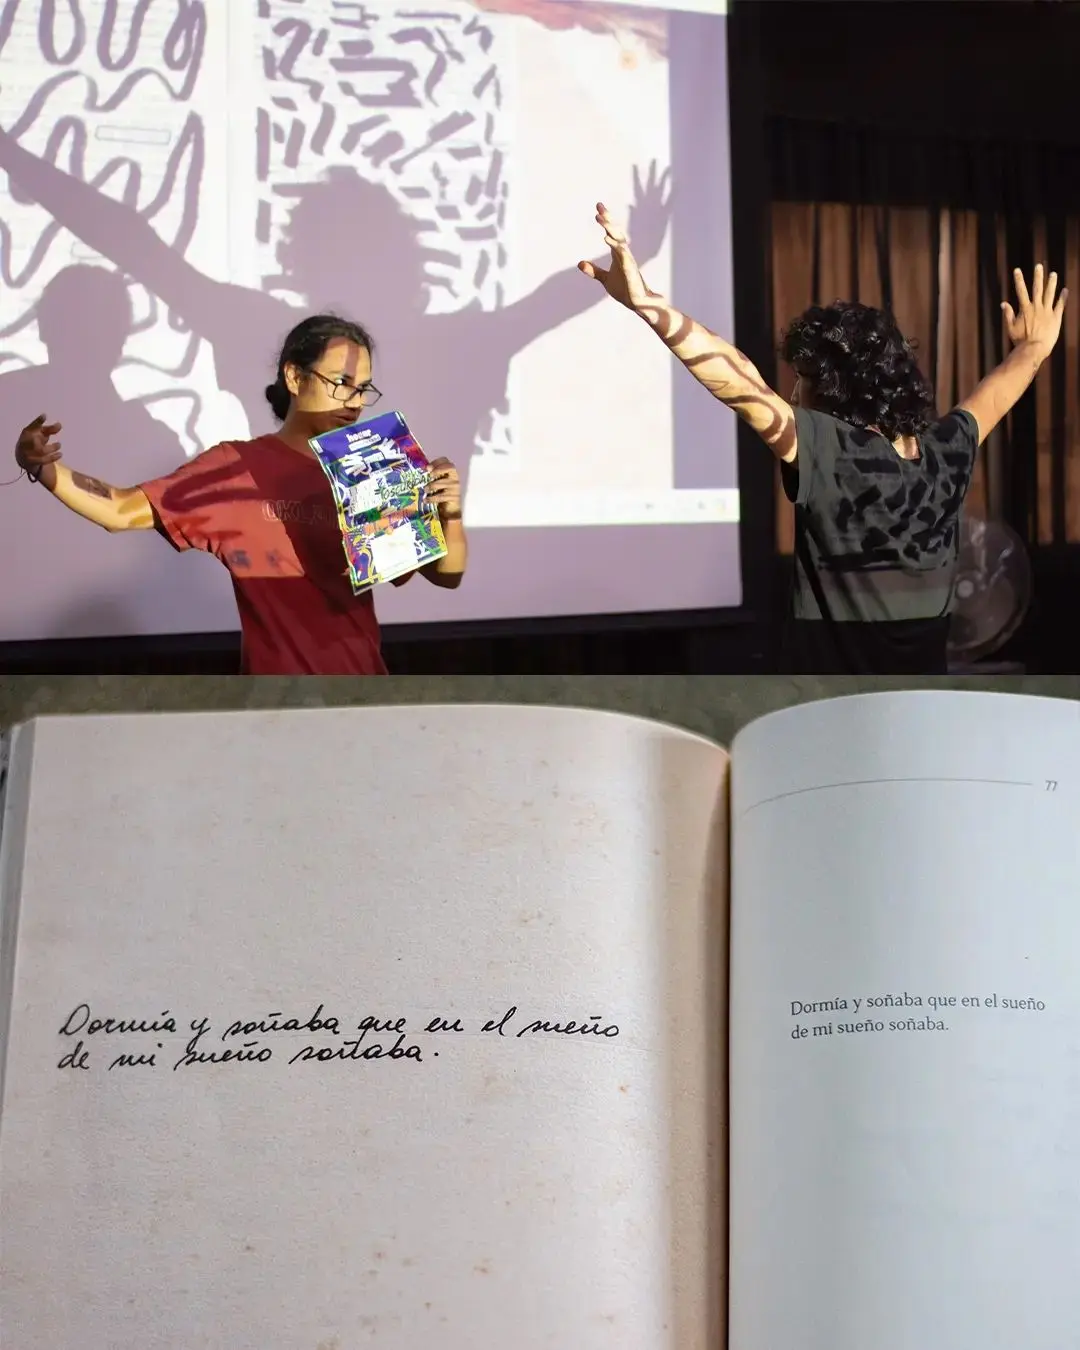 hogar
OSCURIDAD
Dormía y soñaba que en el sueño
de mi sueño soñaba.
77
Dormía y soñaba que en el sueño
de mi sueño soñaba.